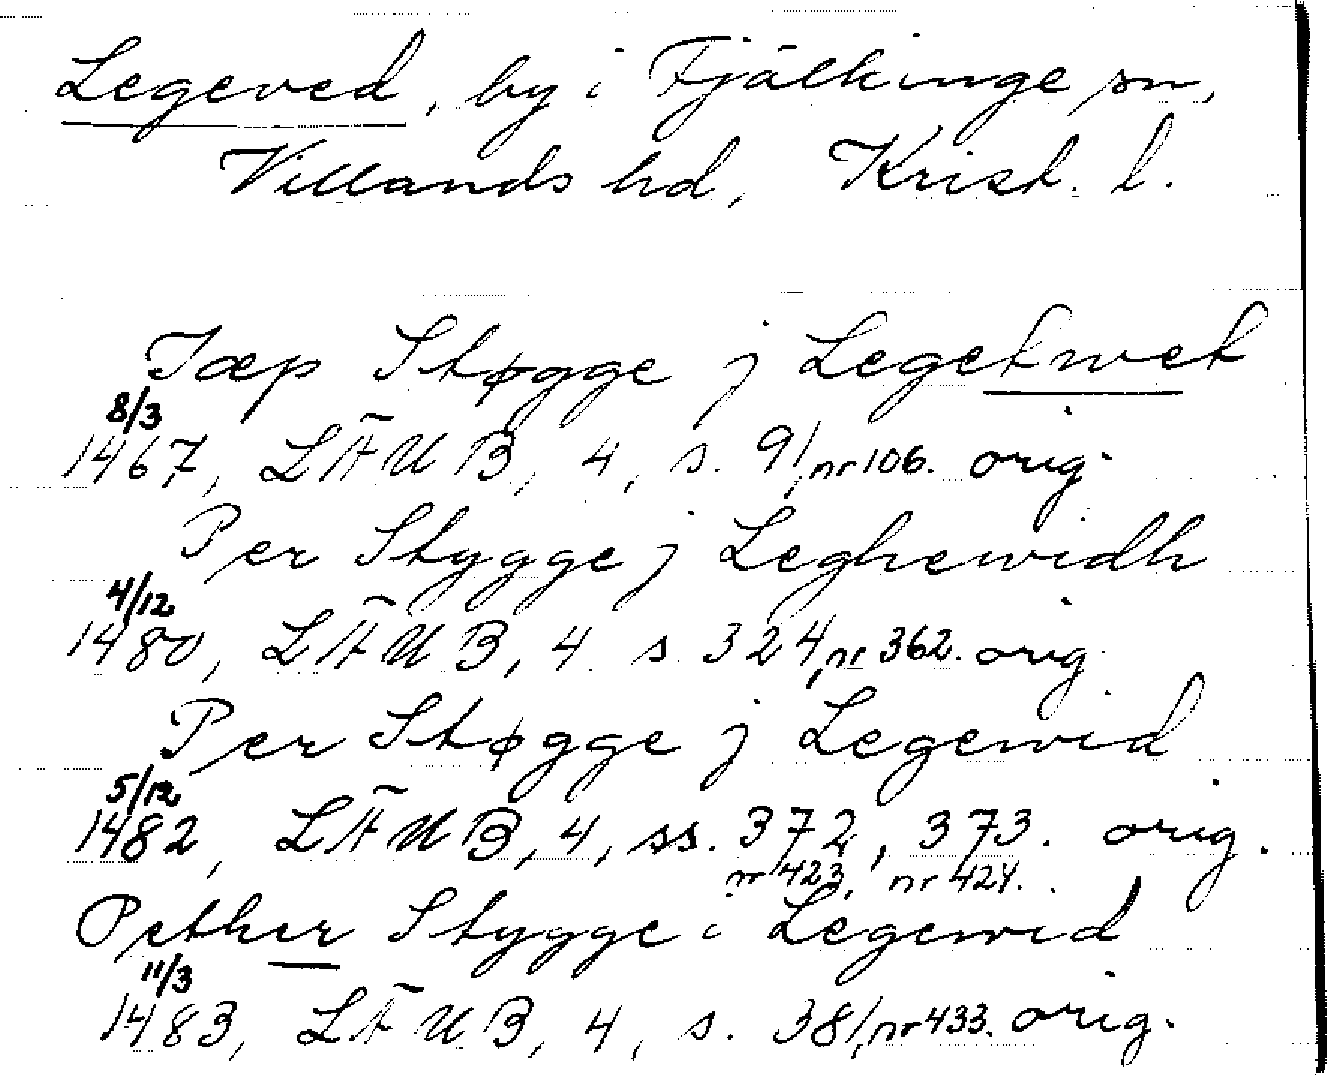 Legeved, by i Fjälkinge sn,
Villands hd, Krist. l.
Jæp Støgge j Legetwet
8/3
1467, LÄUB, 4, s. 91, nr 106. orig.
Per Stygge j Leghewidh
4/12
1480, LÄUB, 4 s 324, nr 362. orig.
Per Støgge j Legewid
5/12
1482, LÄUB, 4, ss. 372, 373. orig.
nr 423, nr 424.
Pether Stygge i Legewid
11/3
1483, LÄUB, 4, s. 381, nr 433. orig.